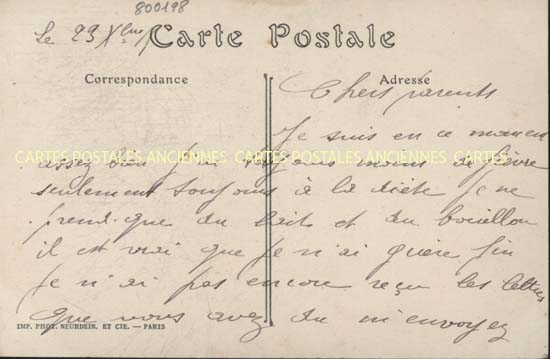 800198
Le 23 Xbre
Carte Postale
Correspondance
Adresse
Chers parents
Je suis en ce moment
assez bien j'ai toujours moins de fièvre
seulement toujours à la diète je ne
prend que du lait et du bouillon
il est vrai que je n'ai guère fin
je n'ai pas encore reçu les lettres
que vous avez du m'envoyez
CARTES POSTALES ANCIENNES CARTES POSTALES ANCIENNES CARTES POSTALES ANCIENNES
IMP. PHOT. NEURDEIN. ET CIE. — PARIS